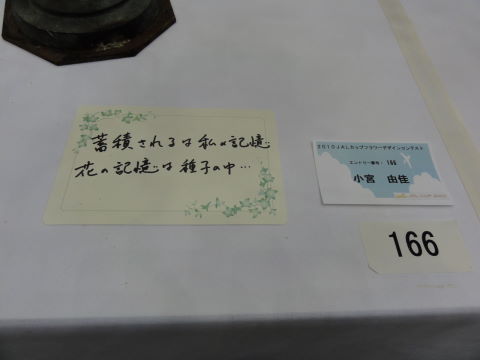 蓄積されるは私の記憶
花の記憶は種子の中…
2010JALカップフラワーデザインコンテスト
エントリー番号： 166
小宮 由佳
166